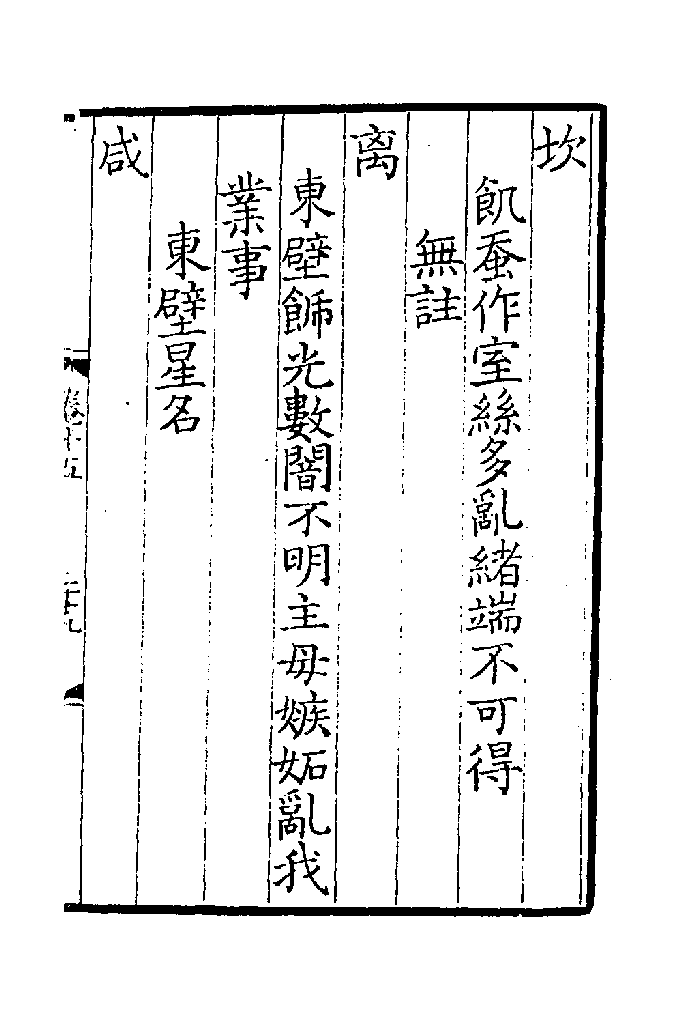 坎
飢蚕作室絲多亂緒端不可得
無註
离
東壁餙光數闇不明主母嫉妬亂我
業事
東壁星名
咸
卷十五